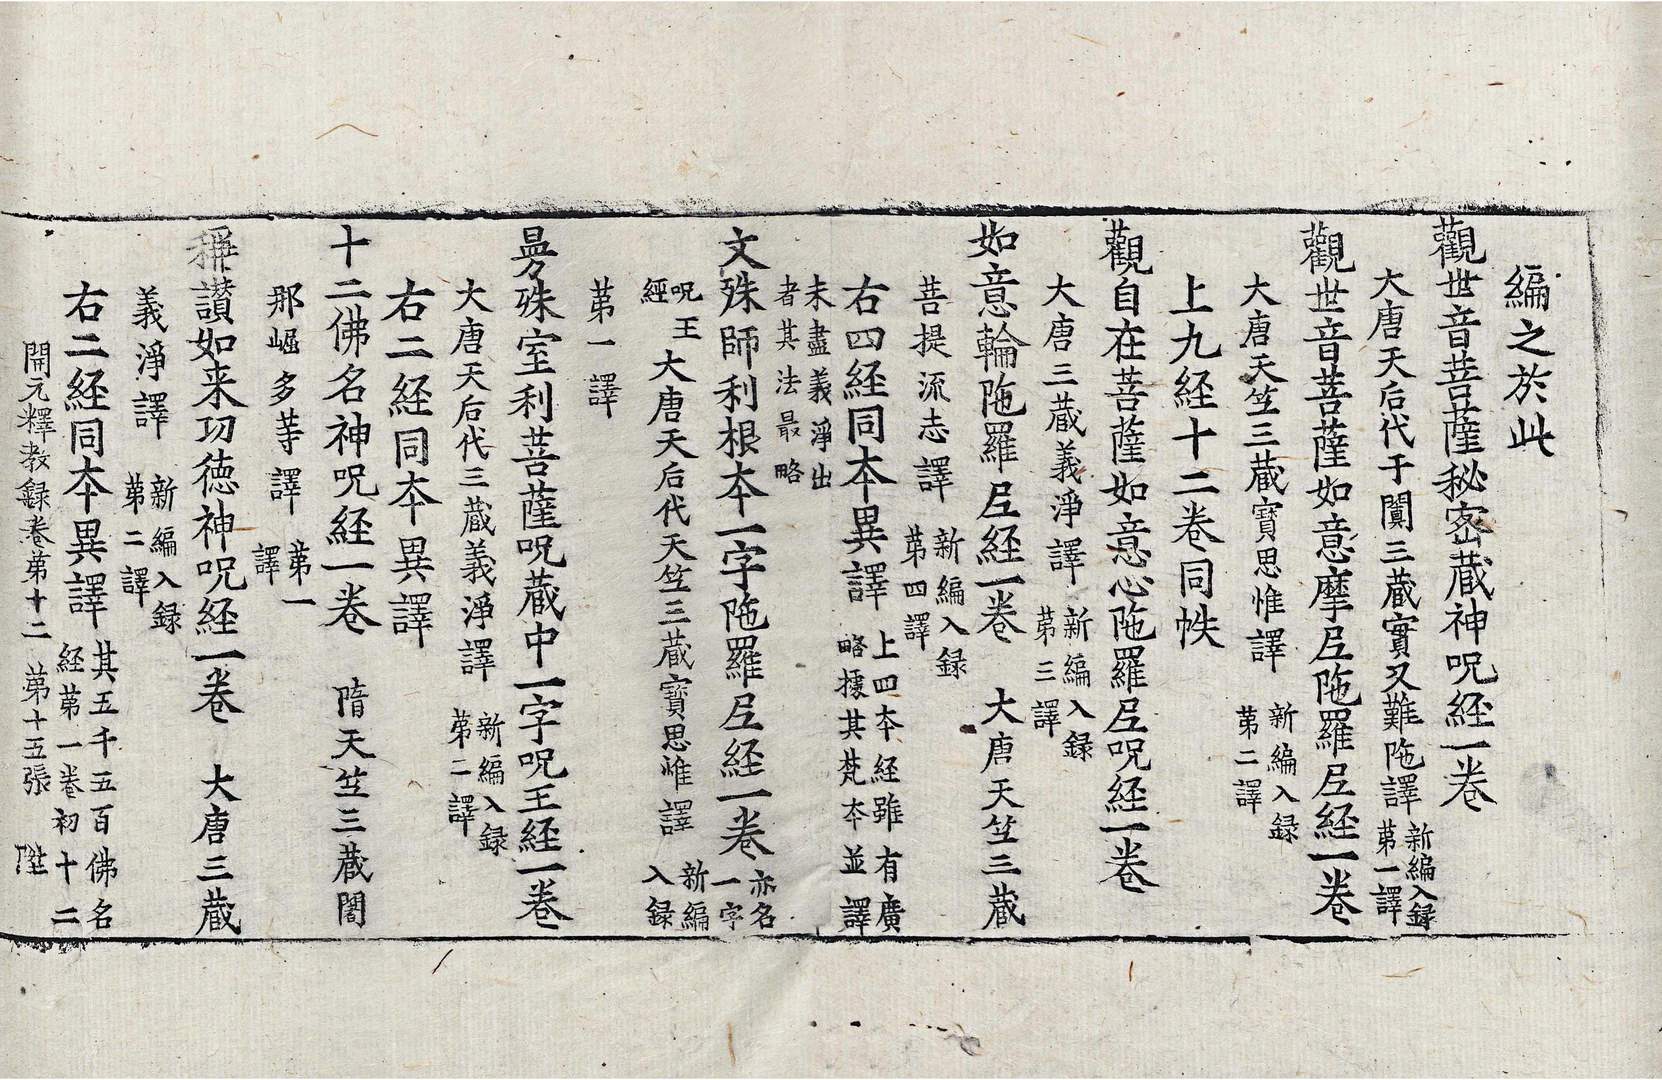 編之於此
觀世音菩薩秘密蔵神呪経一卷
大唐天后代于闐三蔵實叉難陁譯 新編入録第一譯
觀世音菩薩如意摩尼陁羅尼経一卷
大唐天竺三蔵寶思惟譯 新編入録第二譯
上九経十二卷同帙
觀自在菩薩如意心陁羅尼呪経一卷
大唐三蔵義淨譯 新編入録第三譯
如意輪陁羅尼経一卷 大唐天竺三蔵
菩提流志譯 新編入録第四譯
右四経同本異譯 上四本経雖有廣略據其梵本並譯
未盡義淨出者其法最略
文殊師利根本一字陁羅尼経一卷 亦名一字
呪王経 大唐天后代天竺三蔵寶思惟譯 新編入録
第一譯
曼殊室利菩薩呪蔵中一字呪王経一卷
大唐天后代三蔵義淨譯 新編入録第二譯
右二経同本異譯
十二佛名神呪経一卷 隋天竺三蔵闍
那崛多等譯 第一譯
稱讃如来功徳神呪経一卷 大唐三蔵
義淨譯 新編入録第二譯
右二経同本異譯 其五千五百佛名経第一卷初十二
開元釋教録卷第十二 第十五張